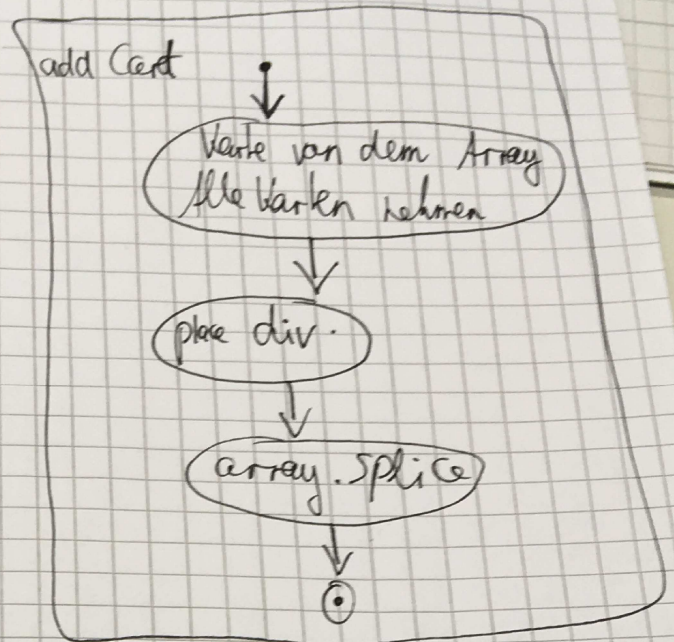 add Cart
Karte von dem Array
Alle Karten nehmen
place div.
array.splice